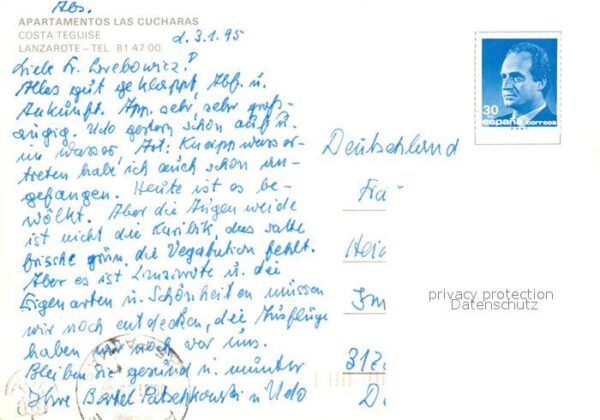 Abs.
APARTAMENTOS LAS CUCHARAS
COSTA TEGUISE
LANZAROTE – TEL. 81 47 00
d. 3.1.95
Liebe Fr.
Alles gut geklappt, Abf. u.
Ankunft. App. sehr, sehr groß-
zügig. Udo gestern schon auf u.
im Wasser, Art: Kneipp wasser-
treten hab ich auch schon an-
gefangen. Heute ist es be-
wölkt. Aber die Augen weide
ist nicht die Karibik, das satte
frische grün, die Vegetation fehlt.
Aber es ist Lanzarote u. die
Eigenarten u. Schönheiten müssen
wir noch entdecken, die Ausflüge
haben wir noch vor uns.
Bleiben Sie gesund u. munter
Ihre u Udo
30
españa correos
Deutschland
Fra
Hein
Im
312
D
privacy protection
Datenschutz